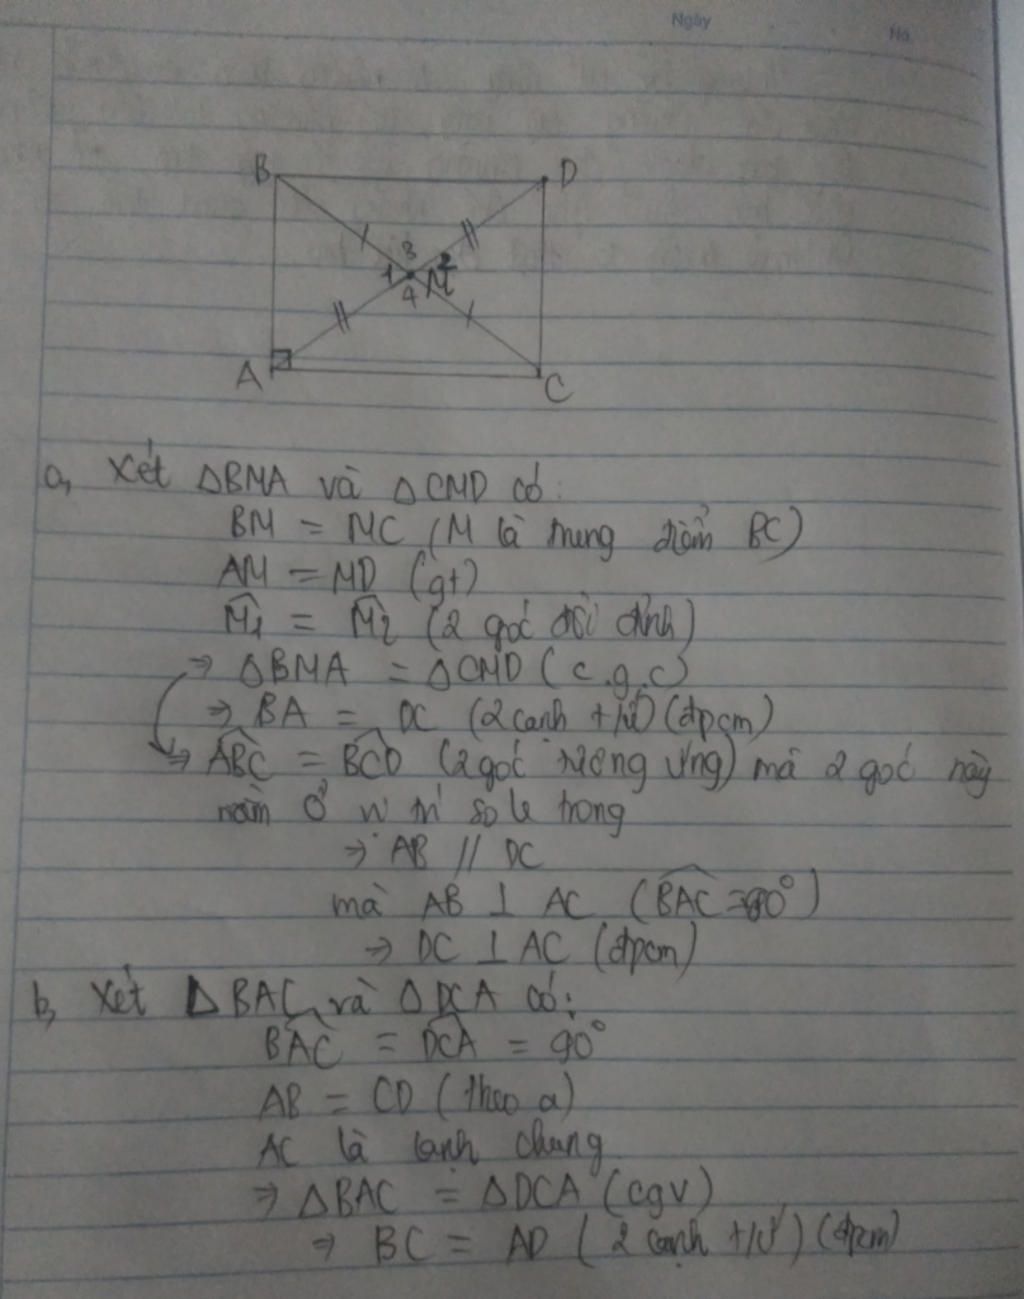 Ngày
No.
B
D
3
1
2
M
4
A
C
a, Xét △BMA và △CMD có:
BM = MC (M là trung điểm BC)
AM = MD (gt)
M̂1 = M̂2 (2 góc đối đỉnh)
⇒ △BMA = △CMD (c.g.c)
⇒ BA = DC (2 cạnh t/ứ) (đpcm)
⇒ ABC = BCD (2 góc tương ứng) mà 2 góc này
nằm ở vị trí so le trong
⇒ AB // DC
mà AB ⊥ AC (BAC = 90°)
⇒ DC ⊥ AC (đpcm)
b, Xét △BAC và △DCA có:
BAC = DCA = 90°
AB = CD (theo a)
AC là cạnh chung
⇒ △BAC = △DCA (cgv)
⇒ BC = AD (2 cạnh t/ứ) (đpcm)